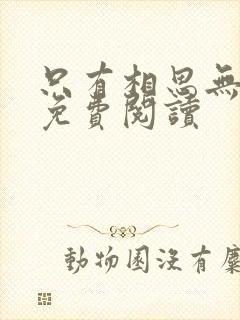 只有相思無
免費閱讀
動物園沒有麋